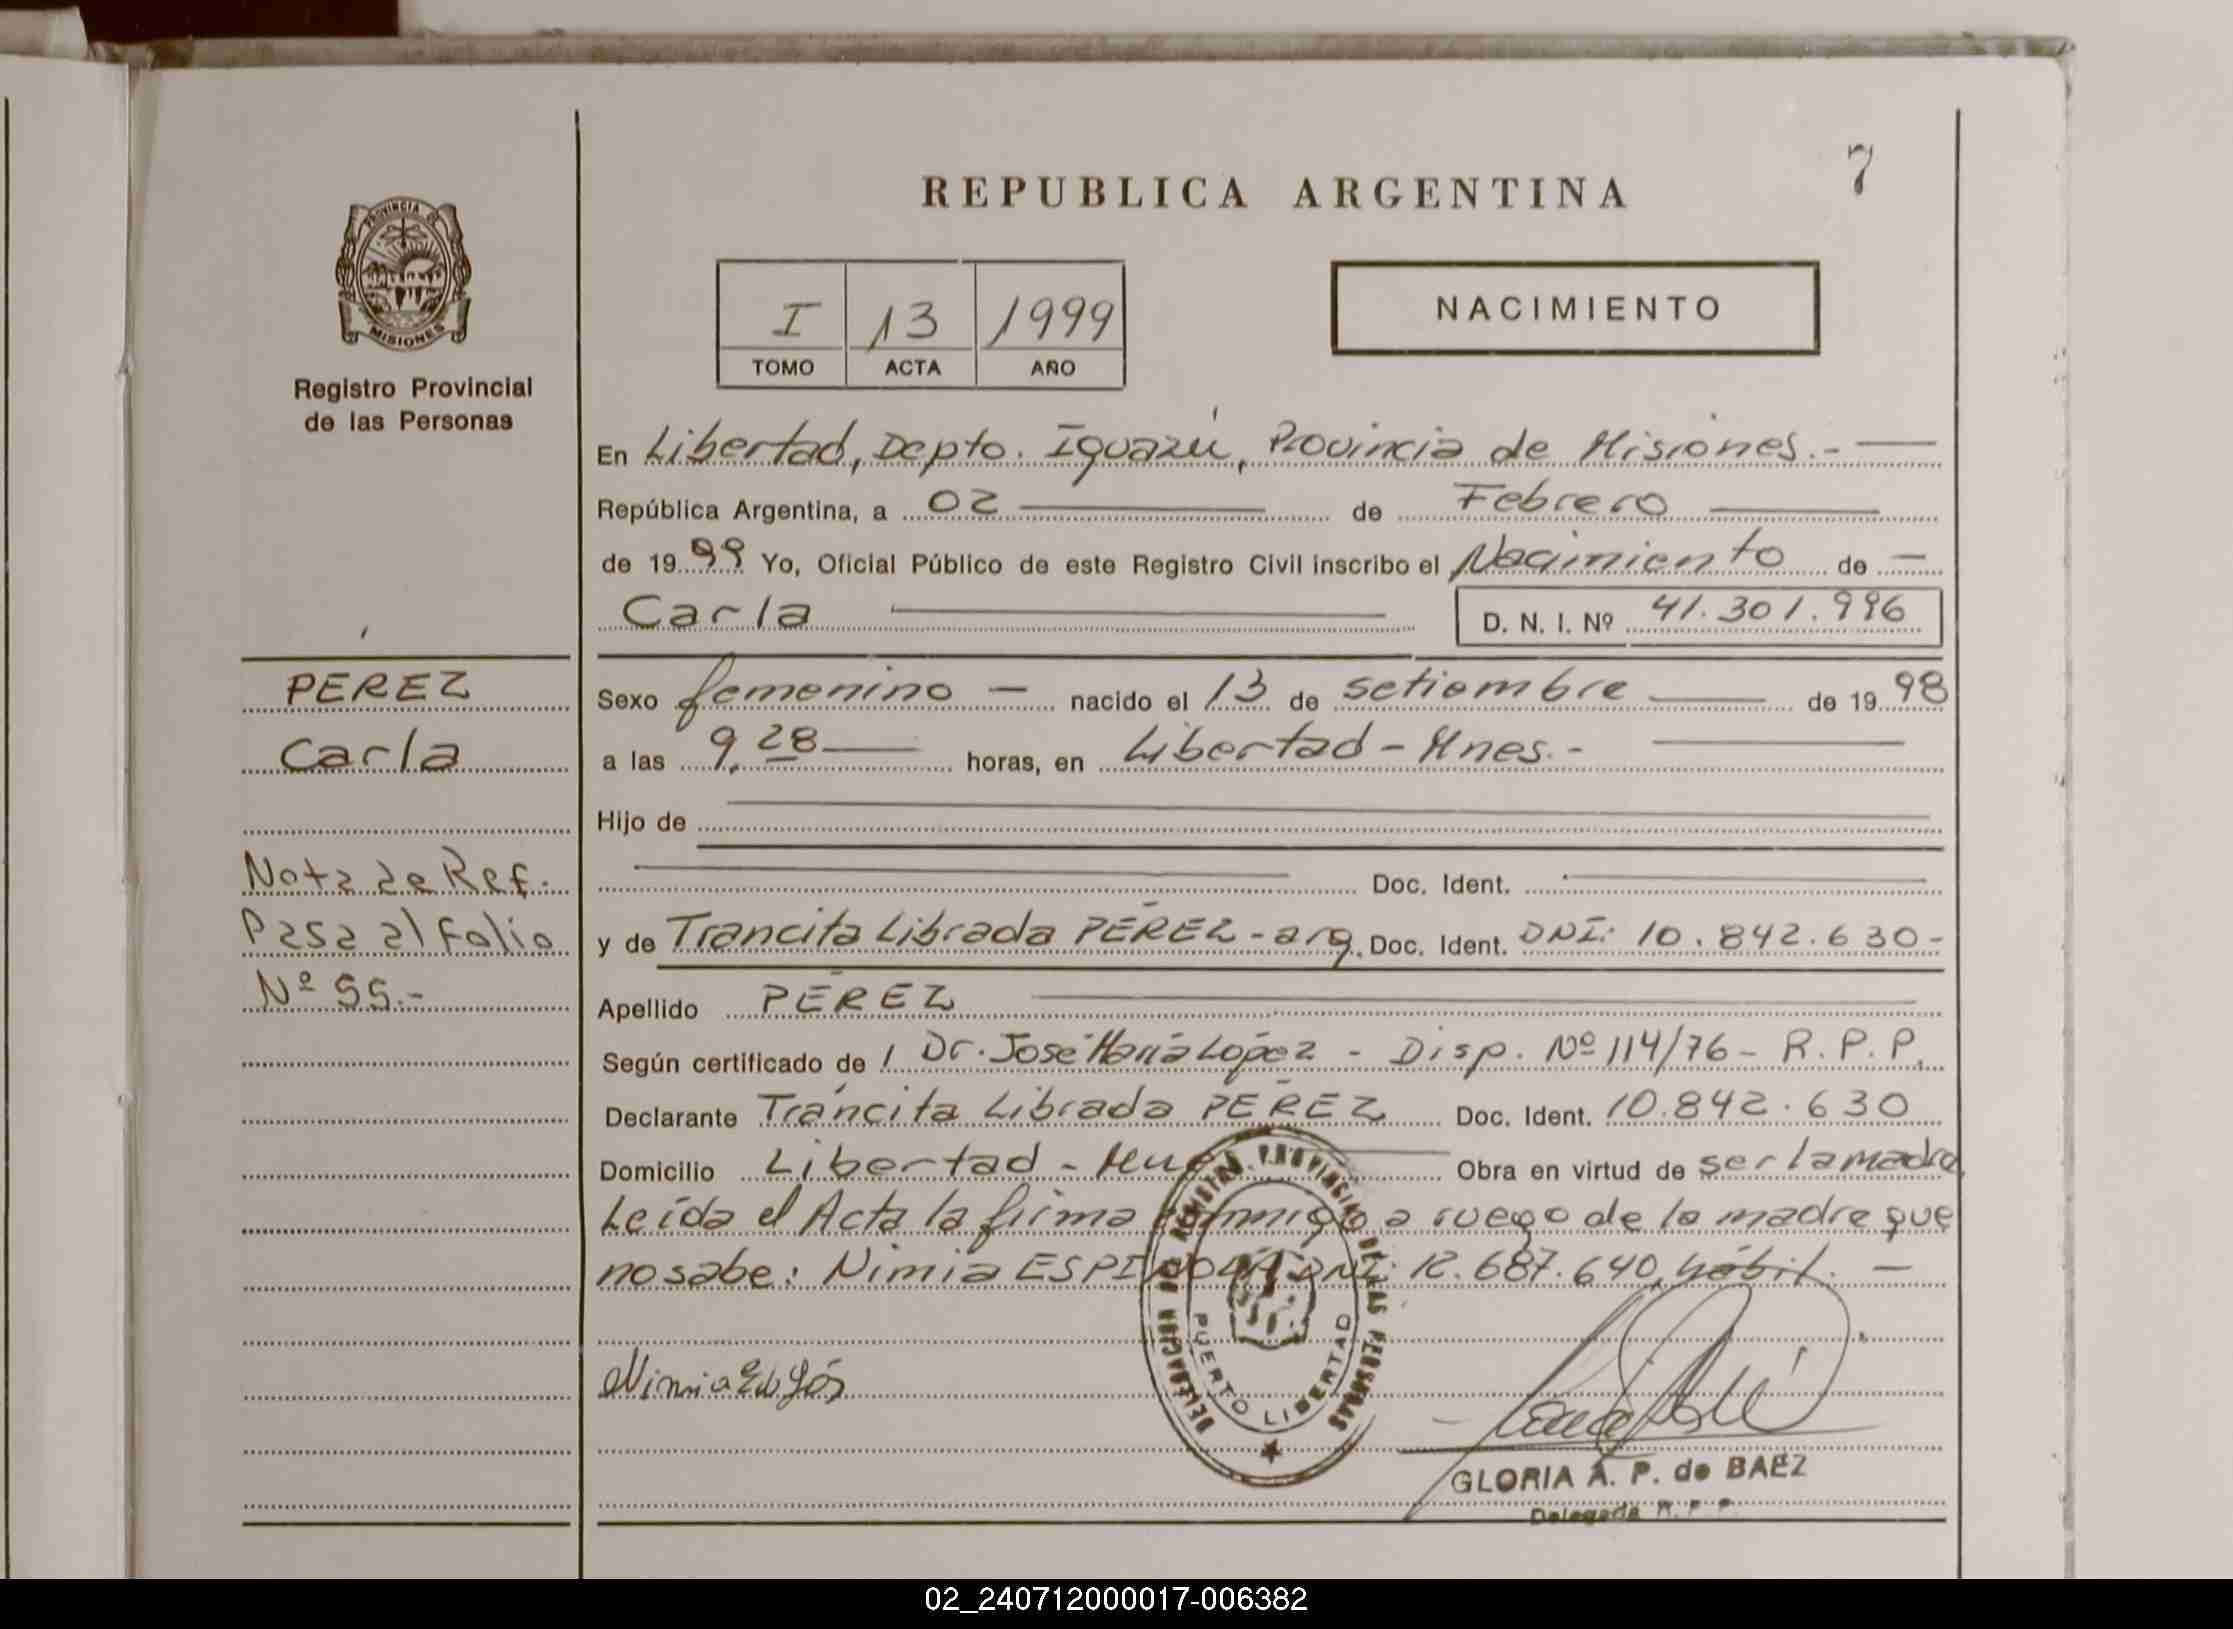 7
REPUBLICA ARGENTINA
PROVINCIA DE
MISIONES
Registro Provincial
de las Personas
I 13 1999
TOMO ACTA AÑO
NACIMIENTO
En Libertad, Depto. Iguazú, Provincia de Misiones.-
República Argentina, a 02 de Febrero
de 1999 Yo, Oficial Público de este Registro Civil inscribo el Nacimiento de
Carla
D. N. I. Nº 41.301.996
PEREZ
Carla
Nota de Ref.
Pasa al Folio
Nº 55.-
Sexo femenino - nacido el 13 de setiembre de 1998
a las 9,28 horas, en Libertad - Mnes.-
Hijo de
Doc. Ident.
y de Trancita Librada PÉREZ - arg. Doc. Ident. DNI: 10.842.630-
Apellido PÉREZ
Según certificado de Dr. José María López - Disp. Nº 114/76 - R.P.P.
Declarante Trancita Librada PÉREZ Doc. Ident. 10.842.630
Domicilio Libertad - Obra en virtud de ser la madre
Leída el Acta la firma conmigo a ruego de la madre que
no sabe: Nimia ESPINOLA DNI: 12.687.640, hábil.
Nimia
DELEGACION DEL REGISTRO PROVINCIAL DE LAS PERSONAS
PUERTO LIBERTAD
GLORIA A. P. de BAEZ
Delegada R. P. P.
02_240712000017-006382